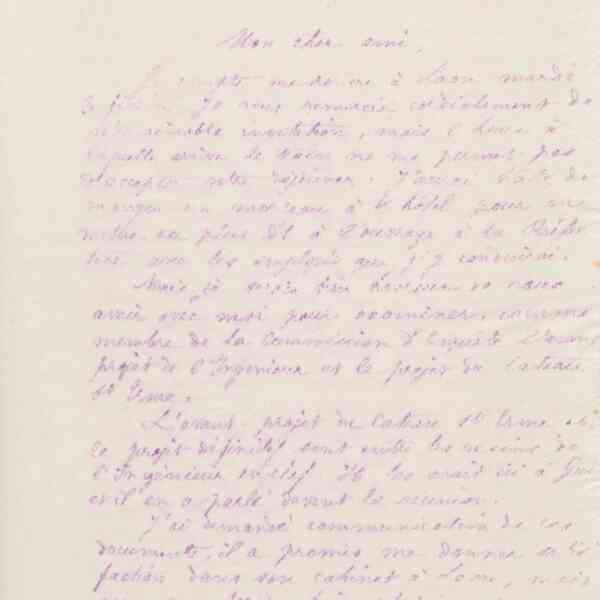 Mon cher ami,
compte me rendre à Laon mardi
3 Je vous remercie cordialement de
votre aimable invitation, mais l'heure à
laquelle arrive le train ne me permet pas
d'accepter votre déjeuner. J'aurai hâte de
manger un morceau à l'hôtel pour me
mettre à l'ouvrage à la Préfec
ture avec les employés que j'y conduirai.
Mais je serais très heureux de vous
avoir avec moi pour examiner, comme
membre de la Commission d'Enquête l'avant
projet de l'Ingénieur et le projet du Cateau
St Erme.
L'avant-projet du Cateau St Erme et
le projet définitif sont entre les mains de
l'Ingénieur en chef. Il les avait à
et il en a parlé devant la réunion.
J'ai demandé communication de ces
documents, il a promis me donner satis
faction dans son cabinet à Laon, mais